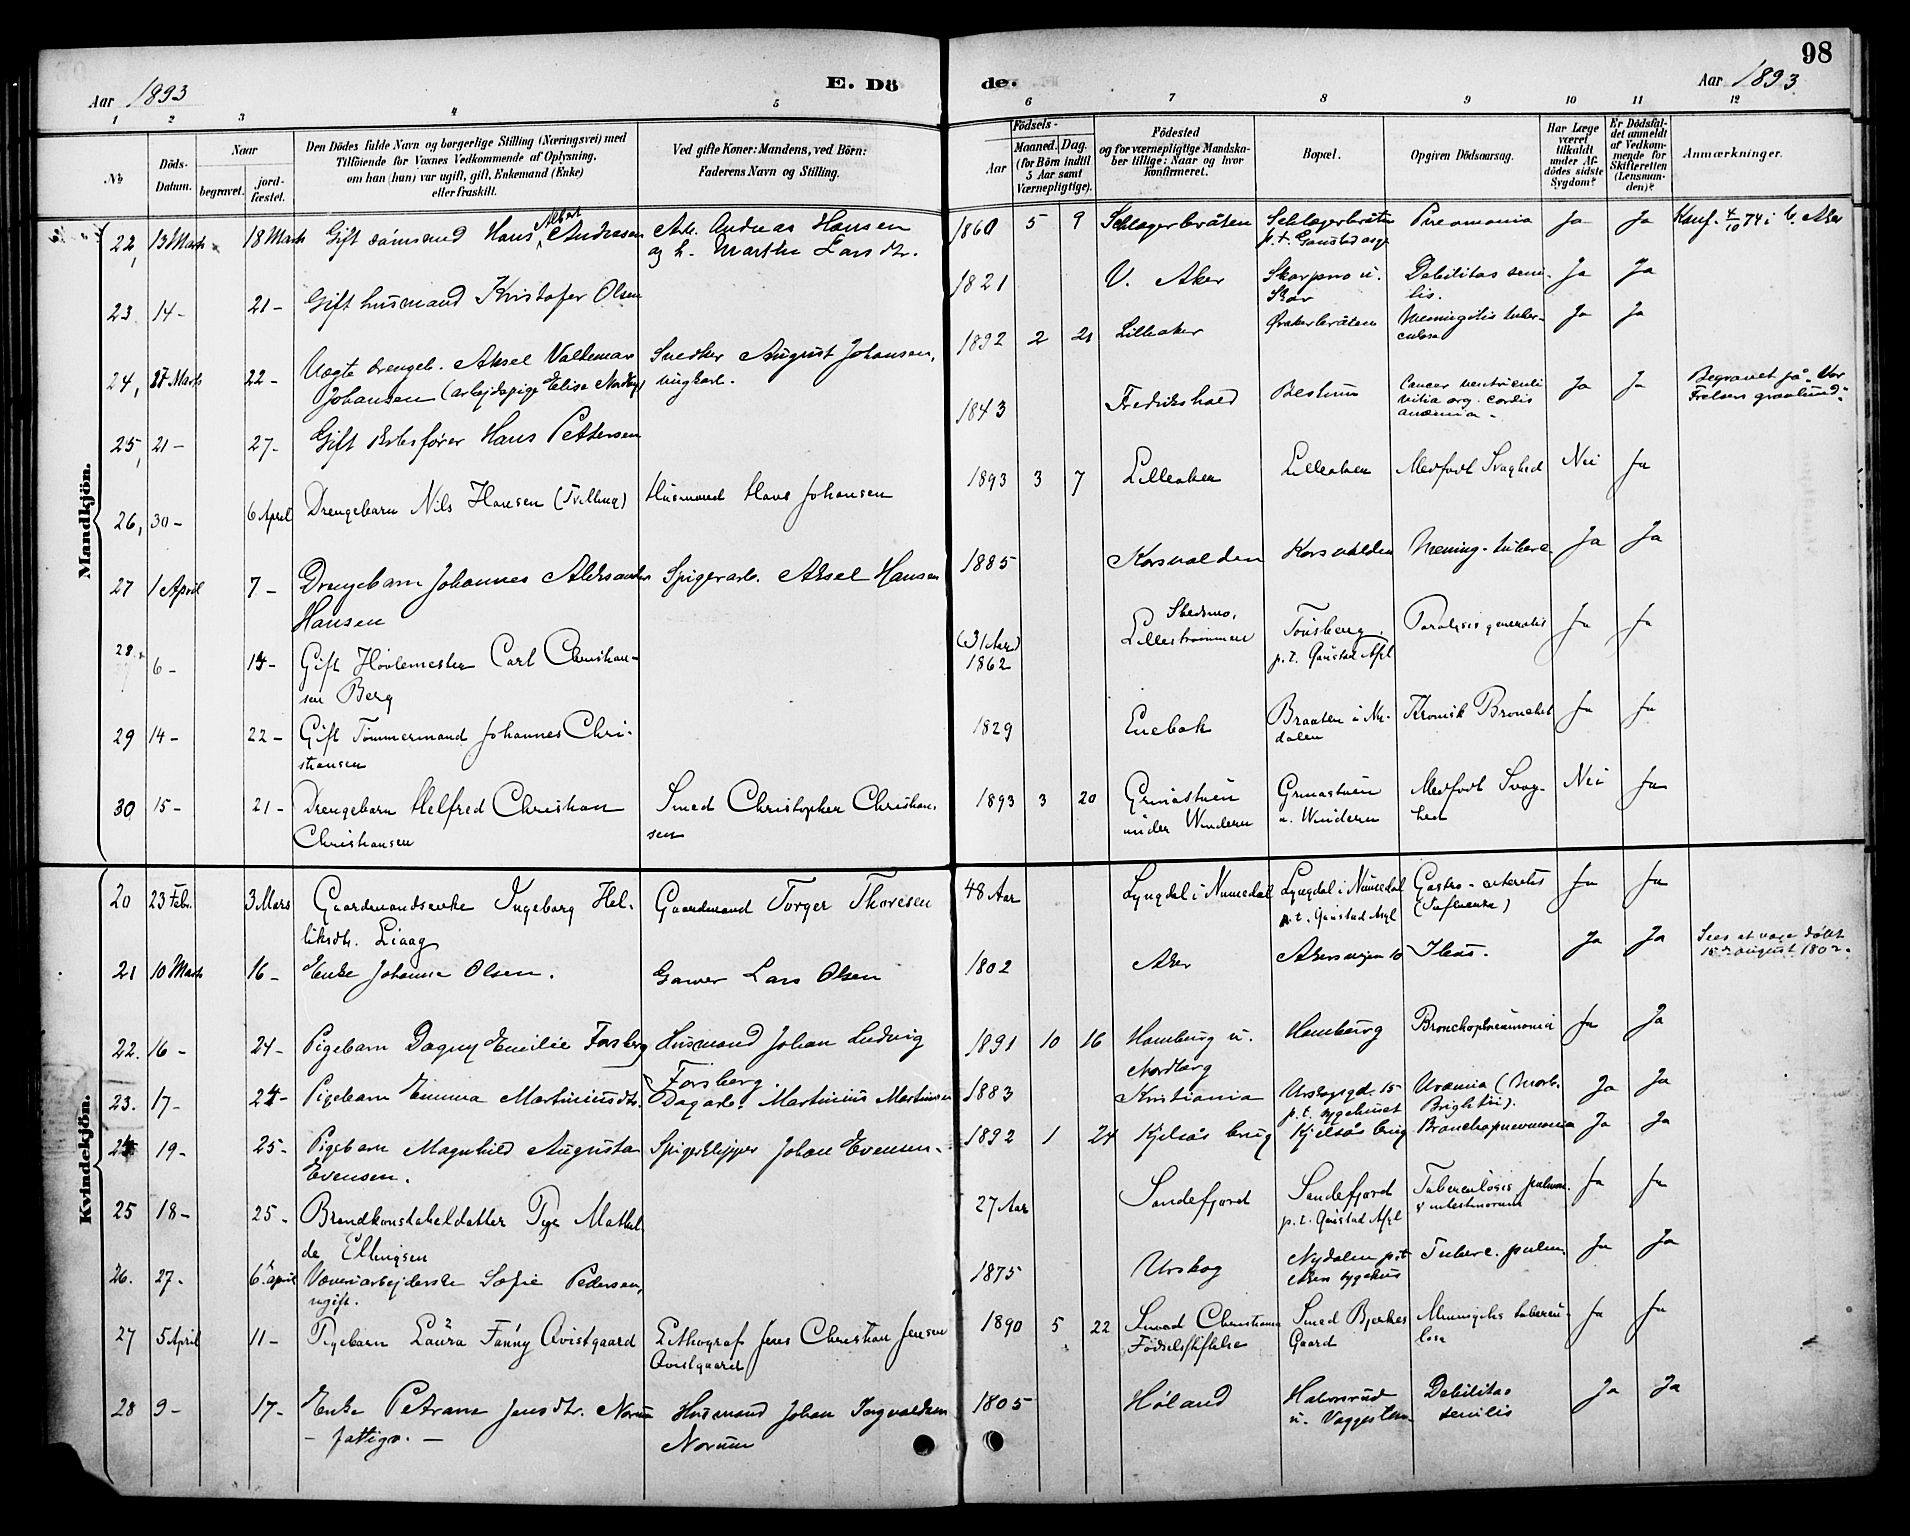 98
Aar 1893
E. Dö
de.
Aar 1893
1 2 3 4 5 6 7 8 9 10 11 12
No
Döds-Datum.
Naar
begravet.
jord-fæstet.
Den Dödes fulde Navn og borgerlige Stilling (Næringsvei) med
Tilföiende for Voxnes Vedkommende af Oplysning,
om han (hun) var ugift, gift, Enkemand (Enke)
eller fraskilt.
Ved gifte Koner: Mandens, ved Börn:
Faderens Navn og Stilling.
Födsels-
Aar
Maaned. Dag.
(for Börn indtil
5 Aar samt
Værnepligtige).
Födested
og for værnepligtige Mandska-
ber tillige: Naar og hvor
konfirmeret.
Bopæl.
Opgiven Dödsaarsag.
Har Læge
været
tilkaldt
under Af-
dödes sidste
Sygdom?
Er Dödsfal-
det anmeldt
af Vedkom-
mende for
Skifteretten
(Lensman-
den)?
Anmærkninger.
Mandkjön.
22, 13 Marts 18 Marts Gift Hans Albert Andresen Andreas Hansen og h. Marthe Larsdtr. 1860 5 9 Schlagerbråten Schlagerbråten p.t. Gaustad asyl Pneumonia Ja Ja Konf. 4/10 74 i V. Aker
23 14- 21- Gift husmand Kristofer Olsen 1821 V. Aker Debilitas senilis. Ja Ja
24, 22- Uægte drengeb. Aksel Valdemar Johansen (arbejdspige Elise Nordby) Snedker August Johansen, ungkarl. 1892 2 21 Lilleaker Ørakerbråten Meningitis tuberculosa Ja Ja
25, 21- 27- Gift Hans Pettersen 1843 Fredrikshald Bestum Cancer ventriculi vitia org. cordis anæmia- Ja Ja Begravet på "Vor Frelsers gravlund".
26, 30- 6 April Drengebarn Nils Hansen (Tvilling) Husmand Hans Johansen 1893 3 7 Lilleaker Lilleaker Medfødt Svaghed Nei Ja
27 1 April 7- Drengebarn Johannes Aleksander Hansen Spigerarb. Aksel Hansen 1885 Korsvolden Korsvolden Mening. tuberc. Ja Ja
28 6- 14- Gift Høvlemester Carl Christiansen Berg (31 Aar) 1862 Skedsmo, Lillestrømmen Tønsberg, p.t. Gaustad Asyl Paralysis generalis Ja Ja
29 14- 22- Gift Tømmermand Johannes Christiansen 1829 Enebak Braaten i Mardalen Kronisk Bronchit Ja Ja
30 15- 21- Drengebarn Helfred Christian Christiansen Smed Christopher Christiansen 1893 3 20 Grimastuen under Winderen Grimastuen u. Winderen Medfødt Svaghed Nei Ja
Kvindekjön.
20 23 Febr. 3 Mars Gaardmandsenke Ingeborg Helliksdtr. Liaag Gaardmand Torger Thoresen 48 Aar Lyngdal i Numedal Lyngdal i Numedal p.t. Gaustad Asyl Gastro-enteritis (Influenza) Ja Ja
21 10 Marts 16- Enke Johanne Olsen. Garver Lars Olsen 1802 Aker Akersvejen 10 Ileus. Ja Ja Sees at være døbt 15de august 1802.
22. 16- 24- Pigebarn Dagny Emilie Forsberg Husmand Johan Ludvig Forsberg. 1891 10 16 Homburg u. Nordberg Homburg Bronchopneumonia Ja Ja
23. 17- 24- Pigebarn Emma Martiniusdtr. Dagarb. Martinius Martinsen 1883 Kristiania Urskogsgd. 15 p.t. sygehuset Uræmia (Morb. Brightii). Ja Ja
24 19- 25- Pigebarn Magnhild Augusta Evensen. Spigerklipper Johan Evensen. 1892 1 24 Kjelsås brug Kjelsås brug Bronchopneumonia Ja Ja
25 18- 25- Brandkonstabeldatter Pige Mathilde Ellingsen 27 Aar Sandefjord Sandefjord p.t. Gaustad Asyl Tuberculosis pulmon. & intestinorum Ja Ja
26. 27- 6. april Væveriarbejderske Sofie Pedersen, ugift. 1875 Urskog Nydalen p.t. Akers sygehus Tuberc. pulm. Ja Ja
27 5 April 11- Pigebarn Laura Fanny Qvistgaard Lithograf Jens Christian Jensen Qvistgaard 1890 5 22 Christiania Fødselsstiftelse Smed Bjerkes Gaard Meningitis tuberculosa Ja Ja
28 9- 17- Enke Petrane Jensdtr. Norum - fattigv. - Husmand Johan Ingvaldsen Norum 1805 Høland Halvorsrud u. Vaggesteen Debilitas senilis Ja Ja